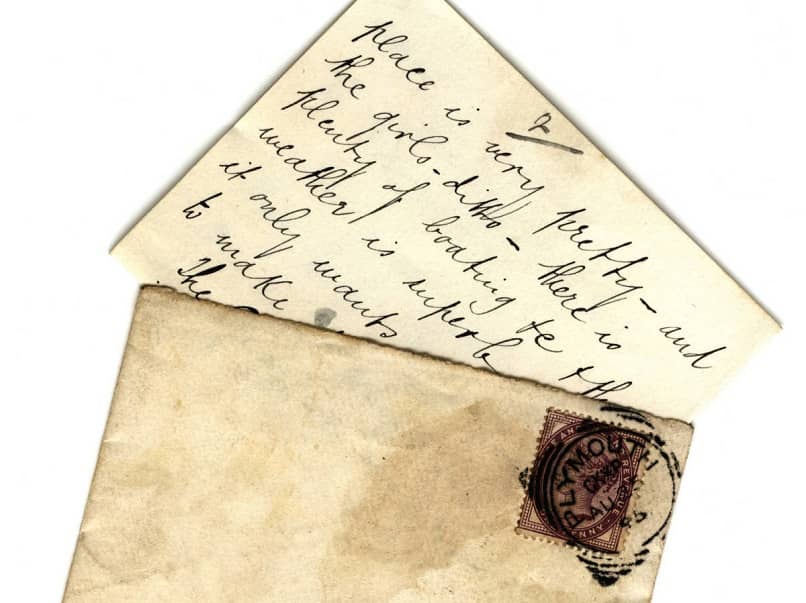 2
place is very pretty – and
the girls – ditto – there is
plenty of boating &c the
weather is superb & th
it only wants
to make
The
PLYMOUTH
AU